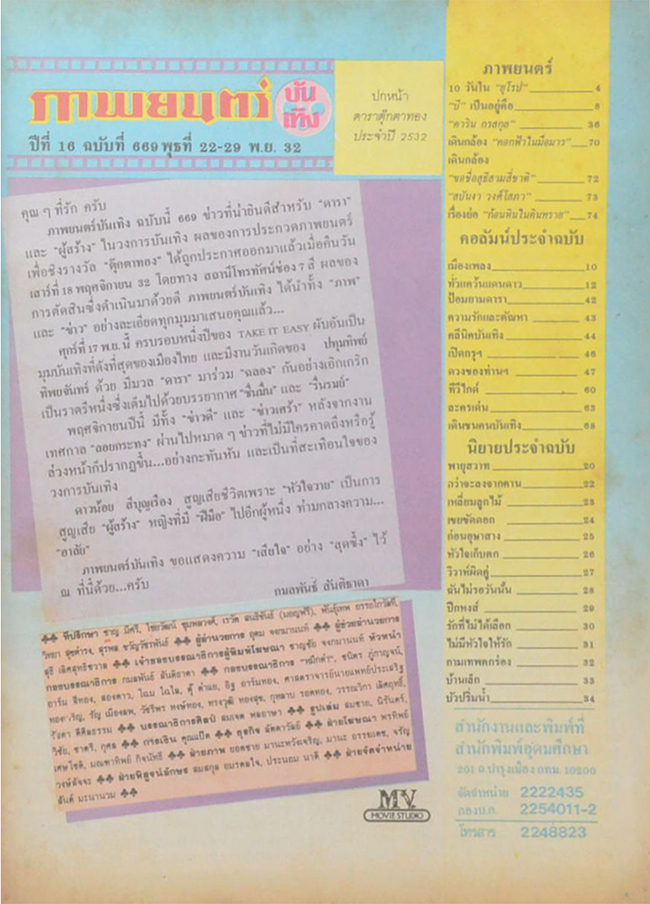 ภาพยนตร์
บันเทิง
ปีที่ 16 ฉบับที่ 669 พุธที่ 22-29 พ.ย. 32
ปกหน้า
ดาราตุ๊กตาทอง
ประจำปี 2532
คุณ ๆ ที่รัก ครับ
ภาพยนตร์บันเทิง ฉบับนี้ 669 ข่าวที่น่ายินดีสำหรับ "ดารา"
และ "ผู้สร้าง" ในวงการบันเทิง ผลของการประกวดภาพยนตร์
เพื่อชิงรางวัล "ตุ๊กตาทอง" ได้ถูกประกาศออกมาแล้วเมื่อคืนวัน
เสาร์ที่ 18 พฤศจิกายน 32 โดยทาง สถานีโทรทัศน์ช่อง 7 สี ผลของ
การตัดสินซึ่งดำเนินมาด้วยดี ภาพยนตร์บันเทิง ได้นำทั้ง "ภาพ"
และ "ข่าว" อย่างละเอียดทุกมุมมาเสนอคุณแล้ว...
ศุกร์ที่ 17 พ.ย. นี้ ครบรอบหนึ่งปีของ TAKE IT EASY ผับอันเป็น
มุมบันเทิงที่ดังที่สุดของเมืองไทย และมีงานวันเกิดของ ปทุมทิพย์
ทิพยจันทร์ ด้วย มีมวล "ดารา" มาร่วม "ฉลอง" กันอย่างเอิกเกริก
เป็นราตรีหนึ่งซึ่งเต็มไปด้วยบรรยากาศ "ชื่นมื่น" และ "รื่นรมย์"
พฤศจิกายนปีนี้ มีทั้ง "ข่าวดี" และ "ข่าวเศร้า" หลังจากงาน
เทศกาล "ลอยกระทง" ผ่านไปหมาด ๆ ข่าวที่ไม่มีใครคาดถึงหรือรู้
ล่วงหน้าก็ปรากฏขึ้น...อย่างกะทันหัน และเป็นที่สะเทือนใจของ
วงการบันเทิง
ดาวน้อย สีบุญเรือง สูญเสียชีวิตเพราะ "หัวใจวาย" เป็นการ
สูญเสีย "ผู้สร้าง" หญิงที่มี "ฝีมือ" ไปอีกผู้หนึ่ง ท่ามกลางความ...
"อาลัย"
ภาพยนตร์บันเทิง ขอแสดงความ "เสียใจ" อย่าง "สุดซึ้ง" ไว้
ณ ที่นี้ด้วย...ครับ
กมลพันธ์ สันติธาดา
ภาพยนตร์
10 วันใน "ยุโรป" 4
"บี" เป็นอยู่คือ 8
"คาริน กรสกุล" 36
เดินกล้อง "ดอกฟ้าในมือมาร" 70
เดินกล้อง
"ขอชื่อสุธีสามสี่ชาติ" 72
"สปันงา วงศ์โสภา" 73
เรื่องย่อ "ก้อนหินในดินทราย" 74
คอลัมน์ประจำฉบับ
เมืองเพลง 10
ทั่วแคว้นแดนดาว 12
ป้อมยามดารา 42
ความรักและตัณหา 43
คลีนิคบันเทิง 44
เปิดกรุฯ 46
ดวงของท่านฯ 47
ทีวีไกด์ 60
ละครเด่น 63
เดินชนคนบันเทิง 68
นิยายประจำฉบับ
พายุสวาท 20
กว่าจะลงจากคาน 22
เหลี่ยมลูกไม้ 23
เขยขัดดอก 24
ก่อนอุษาสาง 25
หัวใจเก็บตก 26
วิวาห์ผิดคู่ 27
ฉันไม่รอวันนั้น 28
ปีกหงส์ 29
รักที่ไม่ได้เลือก 30
ไม่มีหัวใจให้รัก 31
กามเทพตกร่อง 32
บ้านเล็ก 33
บัวปริ่มน้ำ 34
สำนักงานและพิมพ์ที่
สำนักพิมพ์อุดมศึกษา
201 ถ.บำรุงเมือง กทม. 10200
จัดจำหน่าย 2222435
กอง บ.ก. 2254011-2
โทรสาร 2248823
MV
MOVIE STUDIO